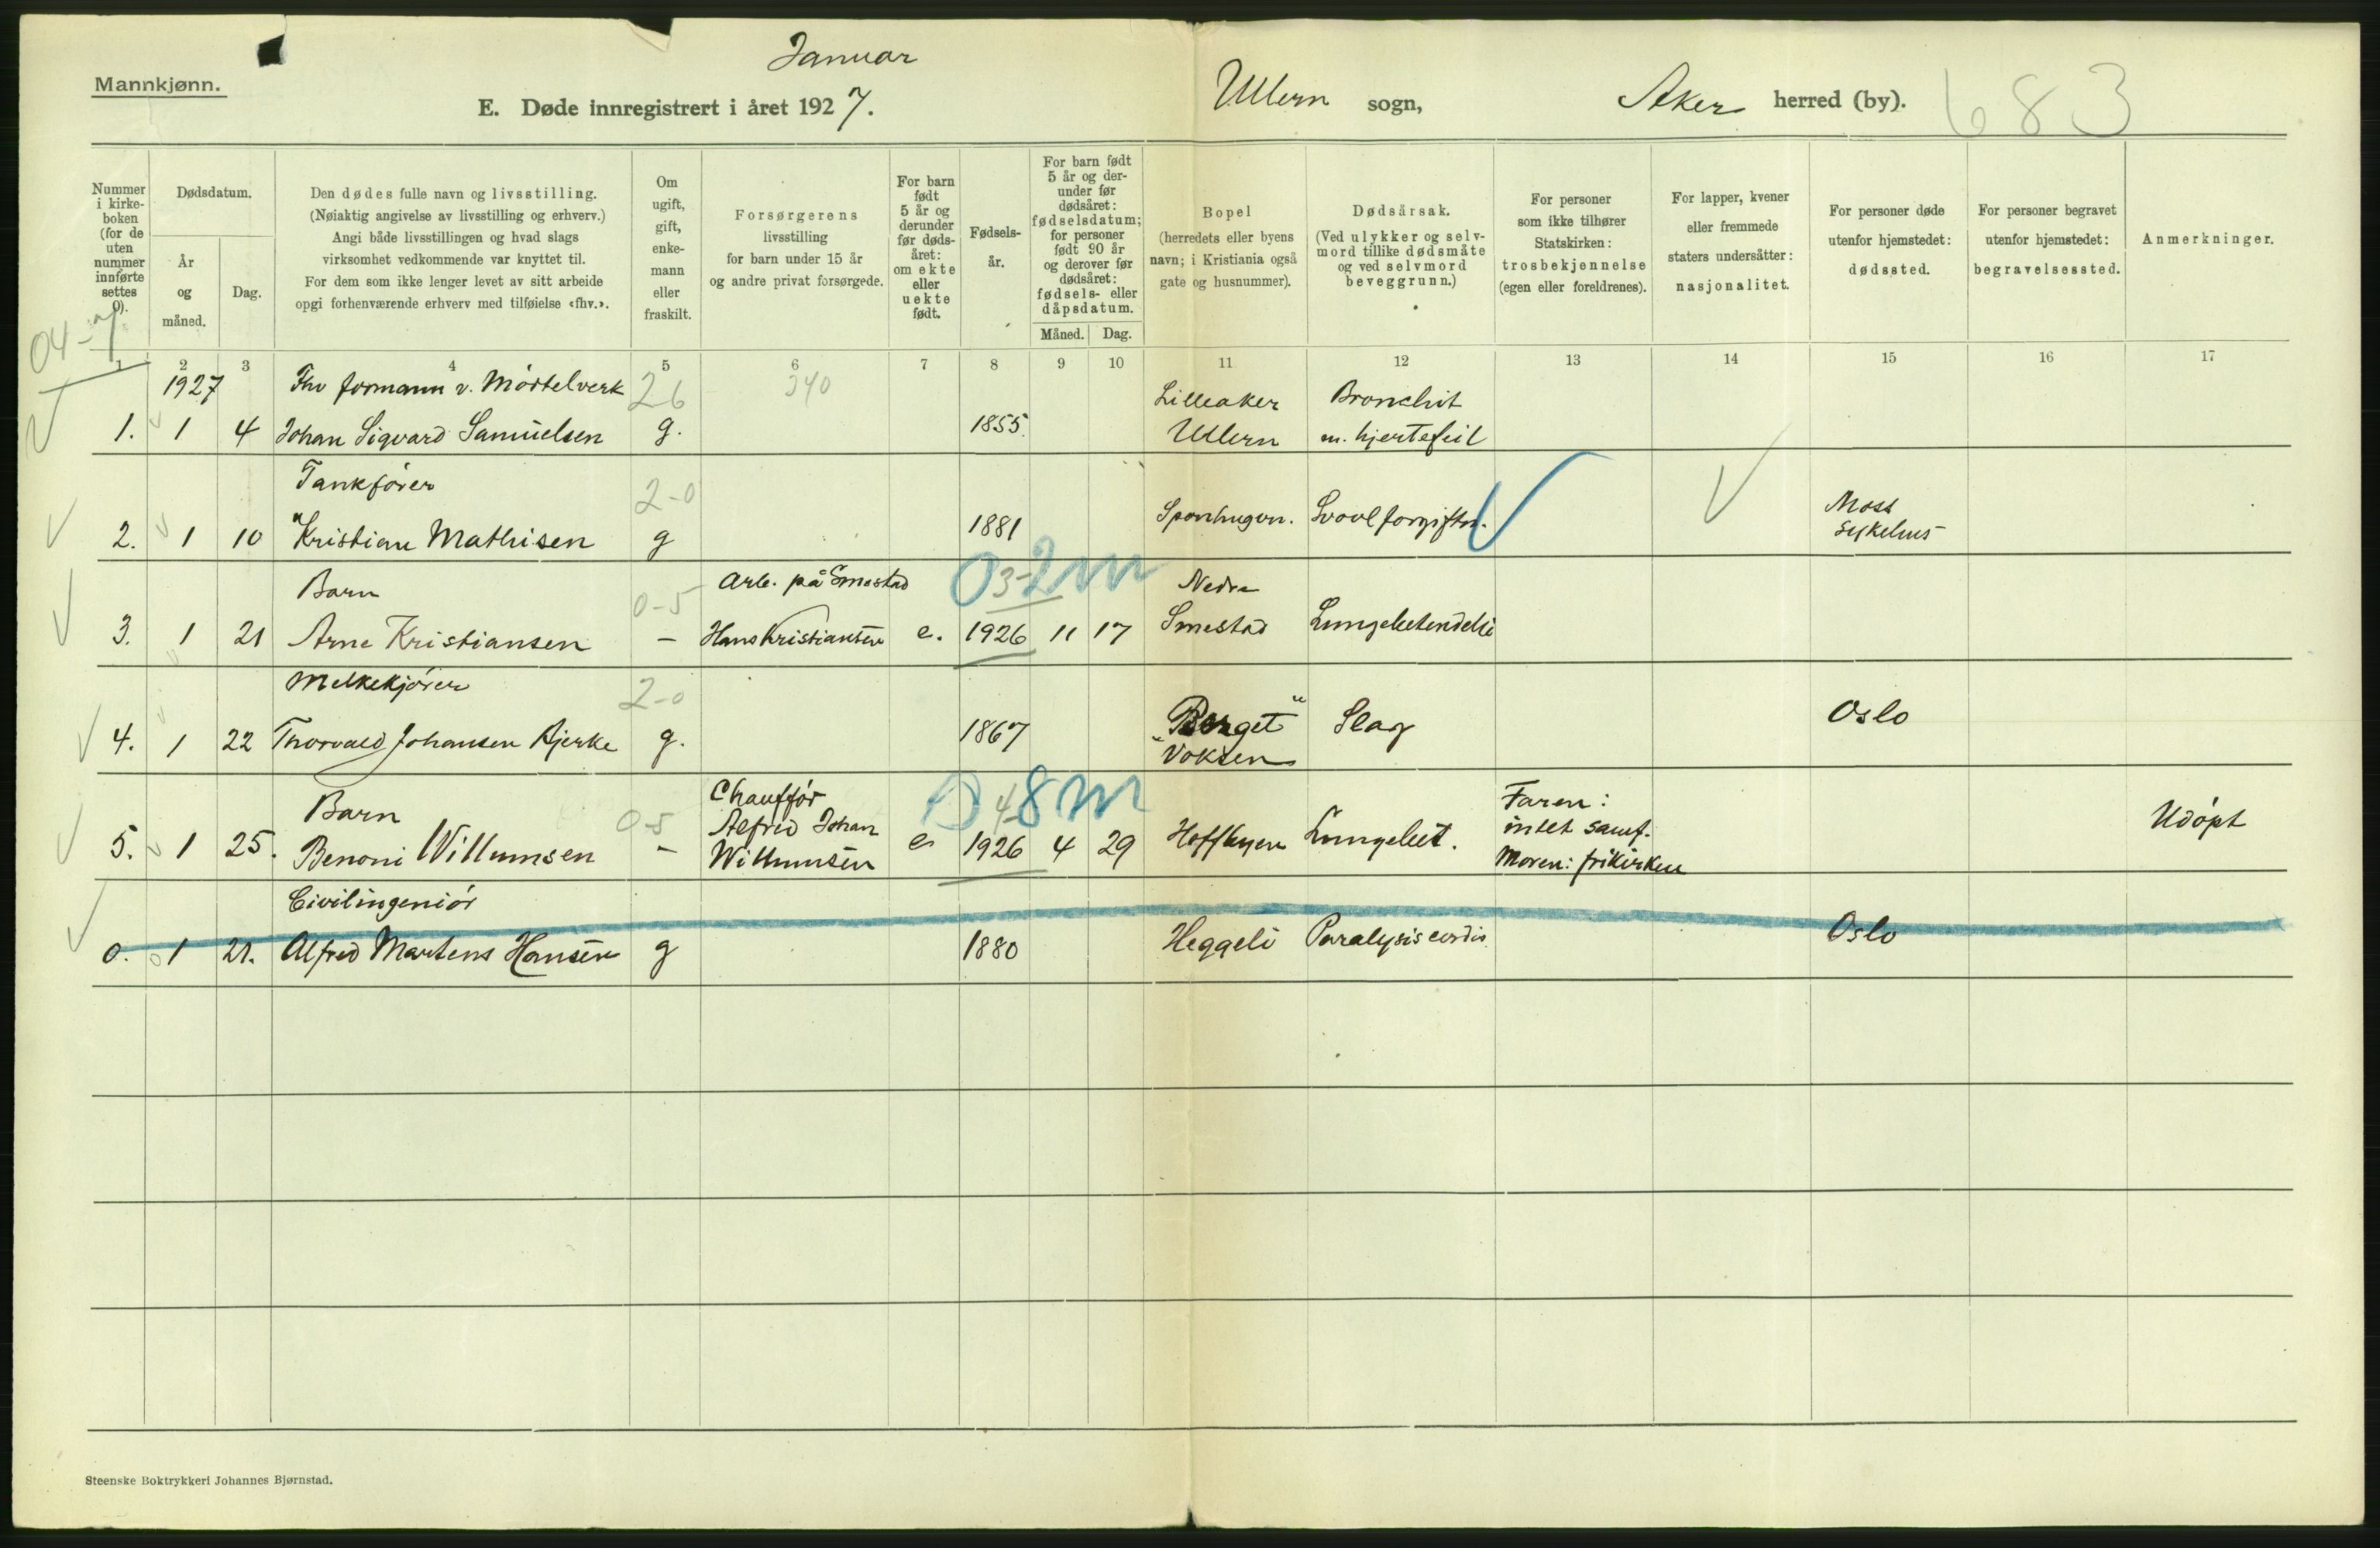 Mannkjønn.
Januar
E. Døde innregistrert i året 1927.
Ullern sogn,
Aker herred (by).
683
Nummer i kirkeboken (for de uten nummer innførte settes 0).
Dødsdatum.
År og måned.
Dag.
Den dødes fulle navn og livsstilling.
(Nøiaktig angivelse av livsstilling og erhverv.)
Angi både livsstillingen og hvad slags
virksomhet vedkommende var knyttet til.
For dem som ikke lenger levet av sitt arbeide
opgi forhenværende erhverv med tilføielse «fhv.».
Om ugift, gift, enkemann eller fraskilt.
Forsørgerens
livsstilling
for barn under 15 år
og andre privat forsørgede.
For barn født 5 år og derunder før dødsåret: om ekte eller uekte født.
Fødselsår.
For barn født 5 år og derunder før dødsåret: fødselsdatum; for personer født 90 år og derover før dødsåret: fødsels- eller dåpsdatum.
Måned. Dag.
Bopel
(herredets eller byens
navn; i Kristiania også
gate og husnummer).
Dødsårsak.
(Ved ulykker og selv-
mord tillike dødsmåte
og ved selvmord
beveggrunn.)
For personer
som ikke tilhører
Statskirken:
trosbekjennelse
(egen eller foreldrenes).
For lapper, kvener
eller fremmede
staters undersåtter:
nasjonalitet.
For personer døde
utenfor hjemstedet:
dødssted.
For personer begravet
utenfor hjemstedet:
begravelsessted.
Anmerkninger.
1 2 3 4 5 6 7 8 9 10 11 12 13 14 15 16 17
1927 Fhv formann v. Mörtelverk 26 340 Lilleaker Bronchit
1. 1 4 Johan Sigvard Samuelsen g. 1855. Ullern m. hjertefeil
Tankfører 2-0 Moss
2. 1 10 Kristian Mathisen g 1881 Svovlforgiftn. Sykehus
Barn 0-5 Arb. på Smestad 03-2m Nedre
3. 1 21 Arne Kristiansen – Hans Kristiansen e. 1926 11 17 Smestad Lungebetendelse
Melkekjører 2-0
4. 1 22 Thorvald Johansen Bjerke g. 1867 "Berget" Slag Oslo
Voksen
Barn 0-5 Chauffør 8m Faren:
Alfred Johan intet samf. Udöpt
5. 1 25. Benoni Willumsen – Willumsen e 1926 4 29 Hoffsbyen Lungebet. Moren: frikirken
Civilingeniör
0. 1 21. Alfred Martens Hansen g 1880 Heggeli Paralysis cordis Oslo
Steenske Boktrykkeri Johannes Bjørnstad.